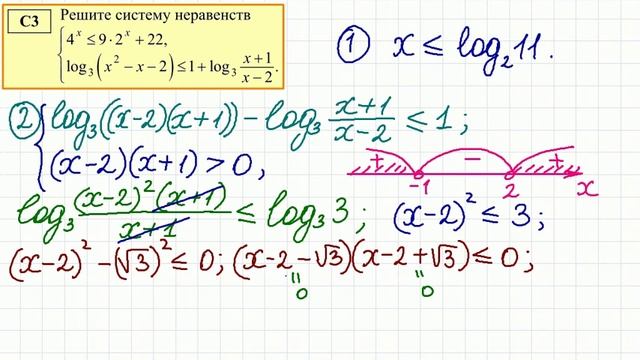 C3
Решите систему неравенств
4^x ≤ 9·2^x + 22,
log₃(x² − x − 2) ≤ 1 + log₃ (x+1)/(x−2).
① x ≤ log₂11.
② log₃((x−2)(x+1)) − log₃ (x+1)/(x−2) ≤ 1;
(x−2)(x+1) > 0,
+ − +
−1 2 x
log₃ (x−2)²(x+1)/(x+1) ≤ log₃3; (x−2)² ≤ 3;
(x−2)² − (√3)² ≤ 0; (x−2−√3)(x−2+√3) ≤ 0;
॥ ॥
0 0